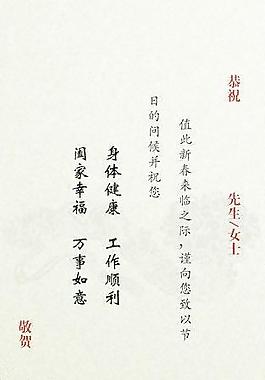 恭祝
先生/女士
值此新春来临之际，谨向您致以节
日的问候并祝您
身体健康 工作顺利
阖家幸福 万事如意
敬贺